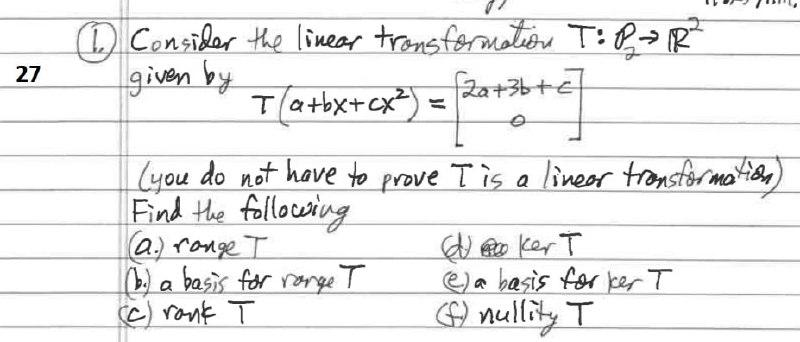 1. Consider the linear transformation T: P₂→ℝ²
27 given by
T(a+bx+cx²) = [2a+3b+c
0]
(you do not have to prove T is a linear transformation)
Find the following
(a.) range T (d) ker T
(b.) a basis for range T (e) a basis for ker T
(c) rank T (f) nullity T